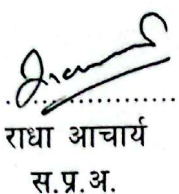 राधा आचार्य
स.प्र.अ.